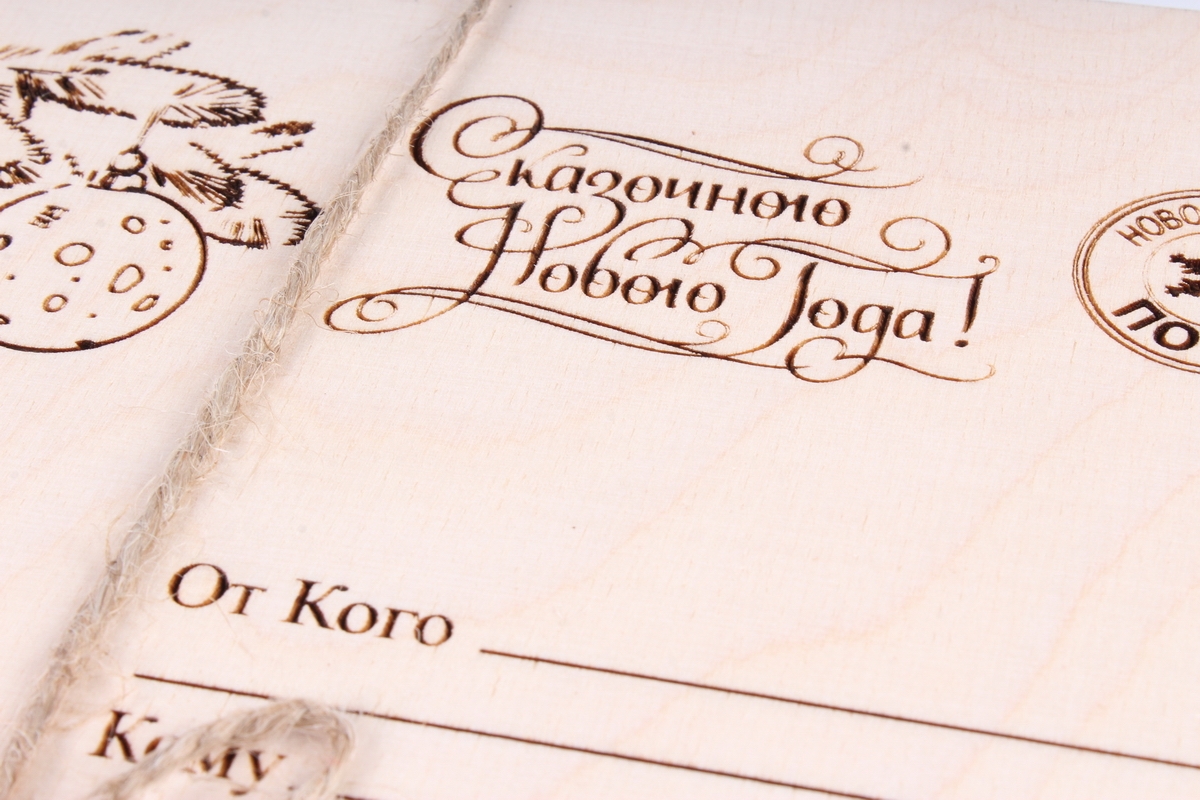 Сказочного
Нового Года!
От Кого
Кому